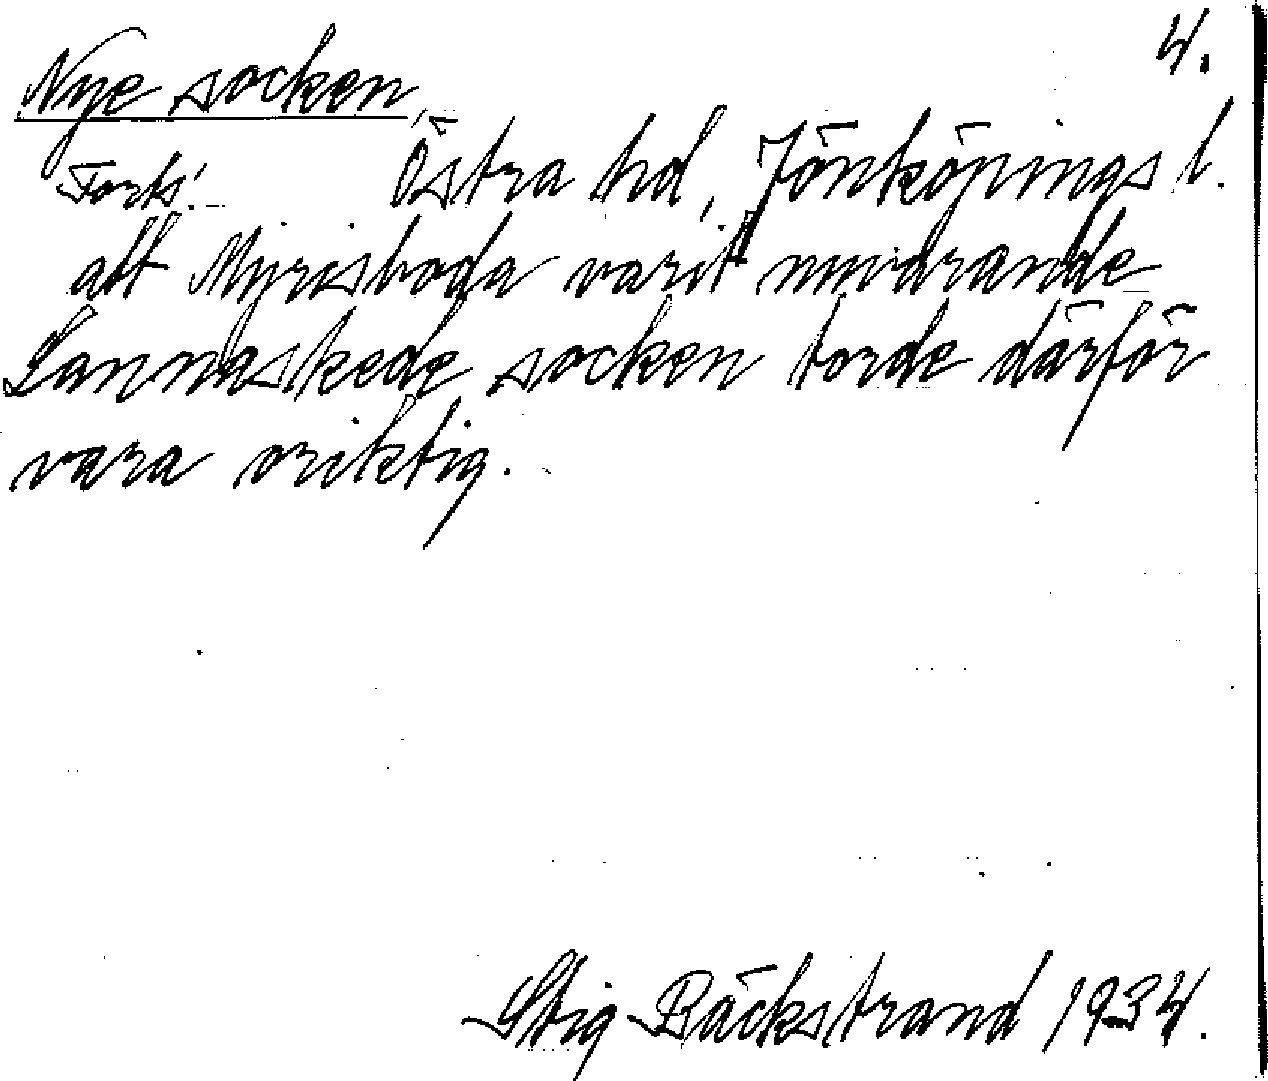 4.
Nye socken,
Forts. Östra hd, Jönköpings l.
att Myresboda varit
Lannaskede socken torde därför
vara oriktig.
Stig Bäckstrand 1934.